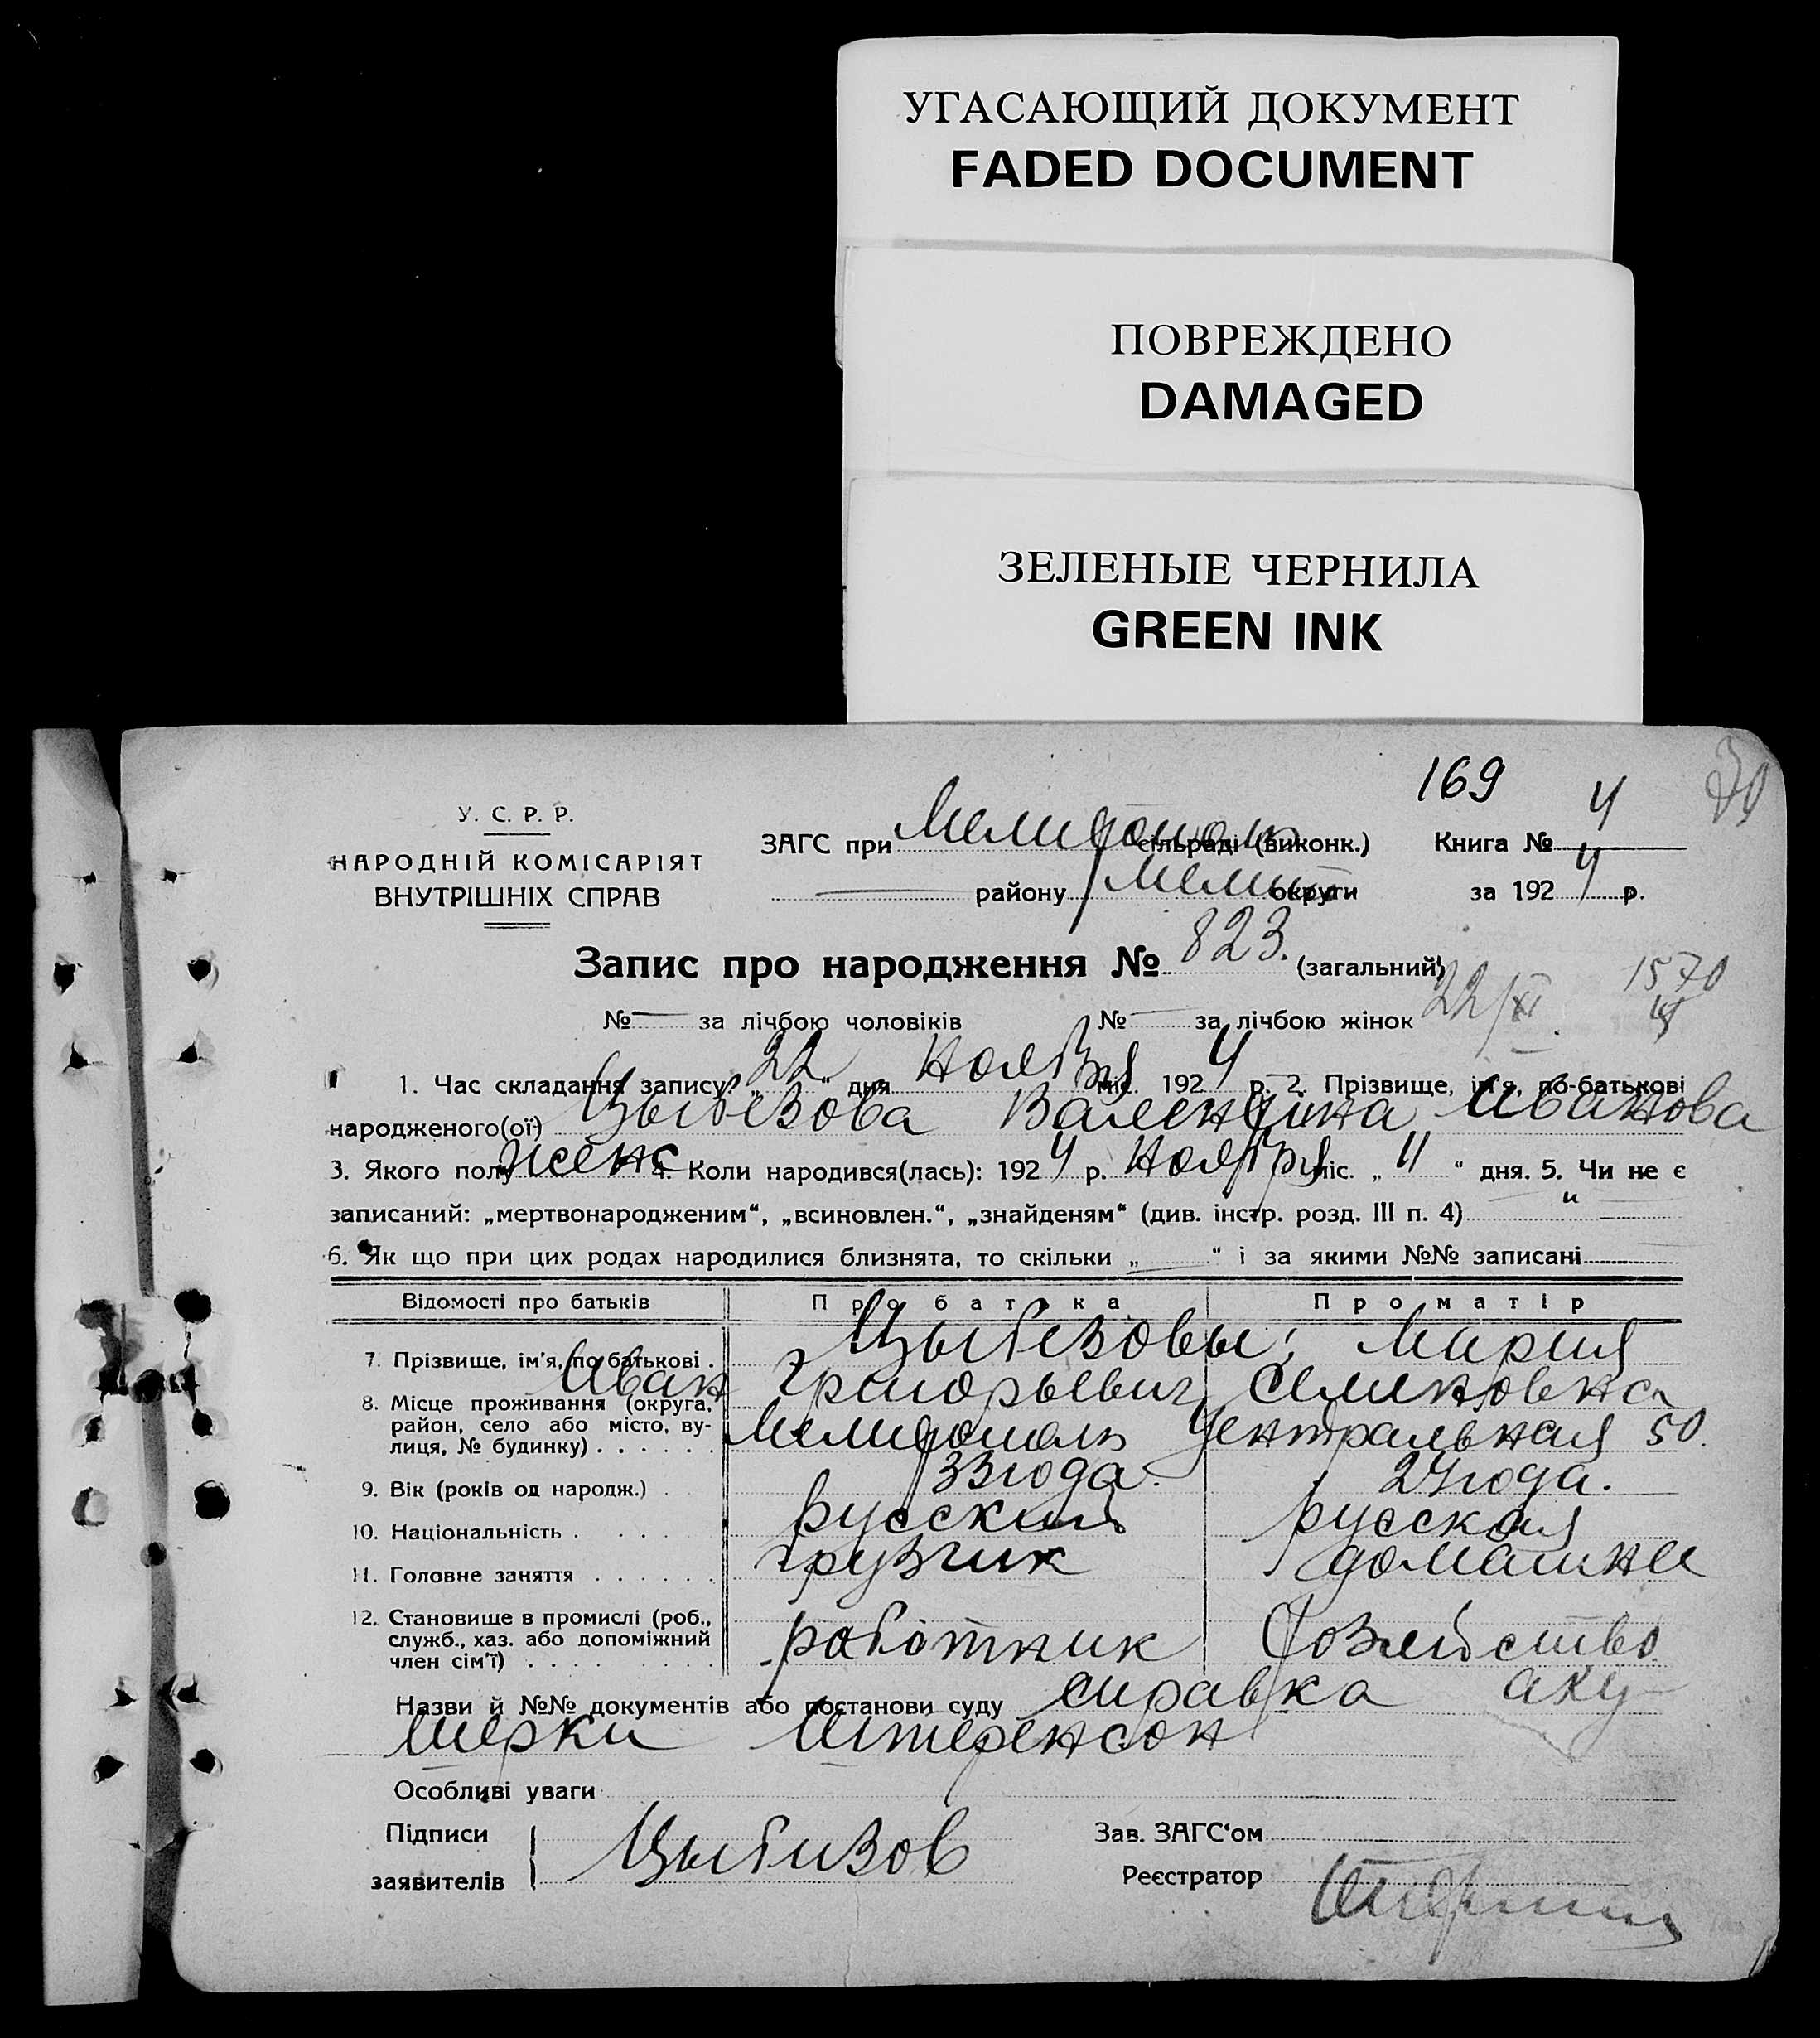 УГАСАЮЩИЙ ДОКУМЕНТ
FADED DOCUMENT
ПОВРЕЖДЕНО
DAMAGED
ЗЕЛЕНЫЕ ЧЕРНИЛА
GREEN INK
169
У. С. Р. Р.
НАРОДНІЙ КОМІСАРІЯТ
ВНУТРІШНІХ СПРАВ
ЗАГС при Мелитополь сільраді (виконк.) Книга № 4
району Мелит округи за 1924 р.
Запис про народження № 823. (загальний)
№ — за лічбою чоловіків № — за лічбою жінок 22/XI. 1570
1. Час складання запису: „22“ дня Ноября міс. 1924 р. 2. Прізвище, ім'я, по-батькові
народженого(ої) Цыбезова Валентина Иванова
3. Якого полу женс 4. Коли народився(лась): 1924 р. Ноября міс. „11“ дня. 5. Чи не є
записаний: „мертвонародженим“, „всиновлен.“, „знайденям“ (див. інстр. розд. III п. 4) „
6. Як що при цих родах народилися близнята, то скільки „—“ і за якими №№ записані
Відомості про батьків Про батька Про матір
7. Прізвище, ім'я, по батькові . Цыбезовы; Мария
Иван Григорьевич Семеновна
8. Місце проживання (округа,
район, село або місто, ву-
лиця, № будинку) . . . . . . Мелитополь Центральная 50.
9. Вік (років од народж.) . 33 года. 24 года.
10. Національність . . . . русский русская
11. Головне заняття . . . . . . грузчик домашнее
12. Становище в промислі (роб.,
служб., хаз. або допоміжний
член сім'ї) . . . . . . . . работник Хозяйство
Назви й №№ документів або постанови суду справка аку-
шерки Штеренсон
Особливі уваги
Підписи Зав. ЗАГС'ом
заявителів Цыбизов Реєстратор